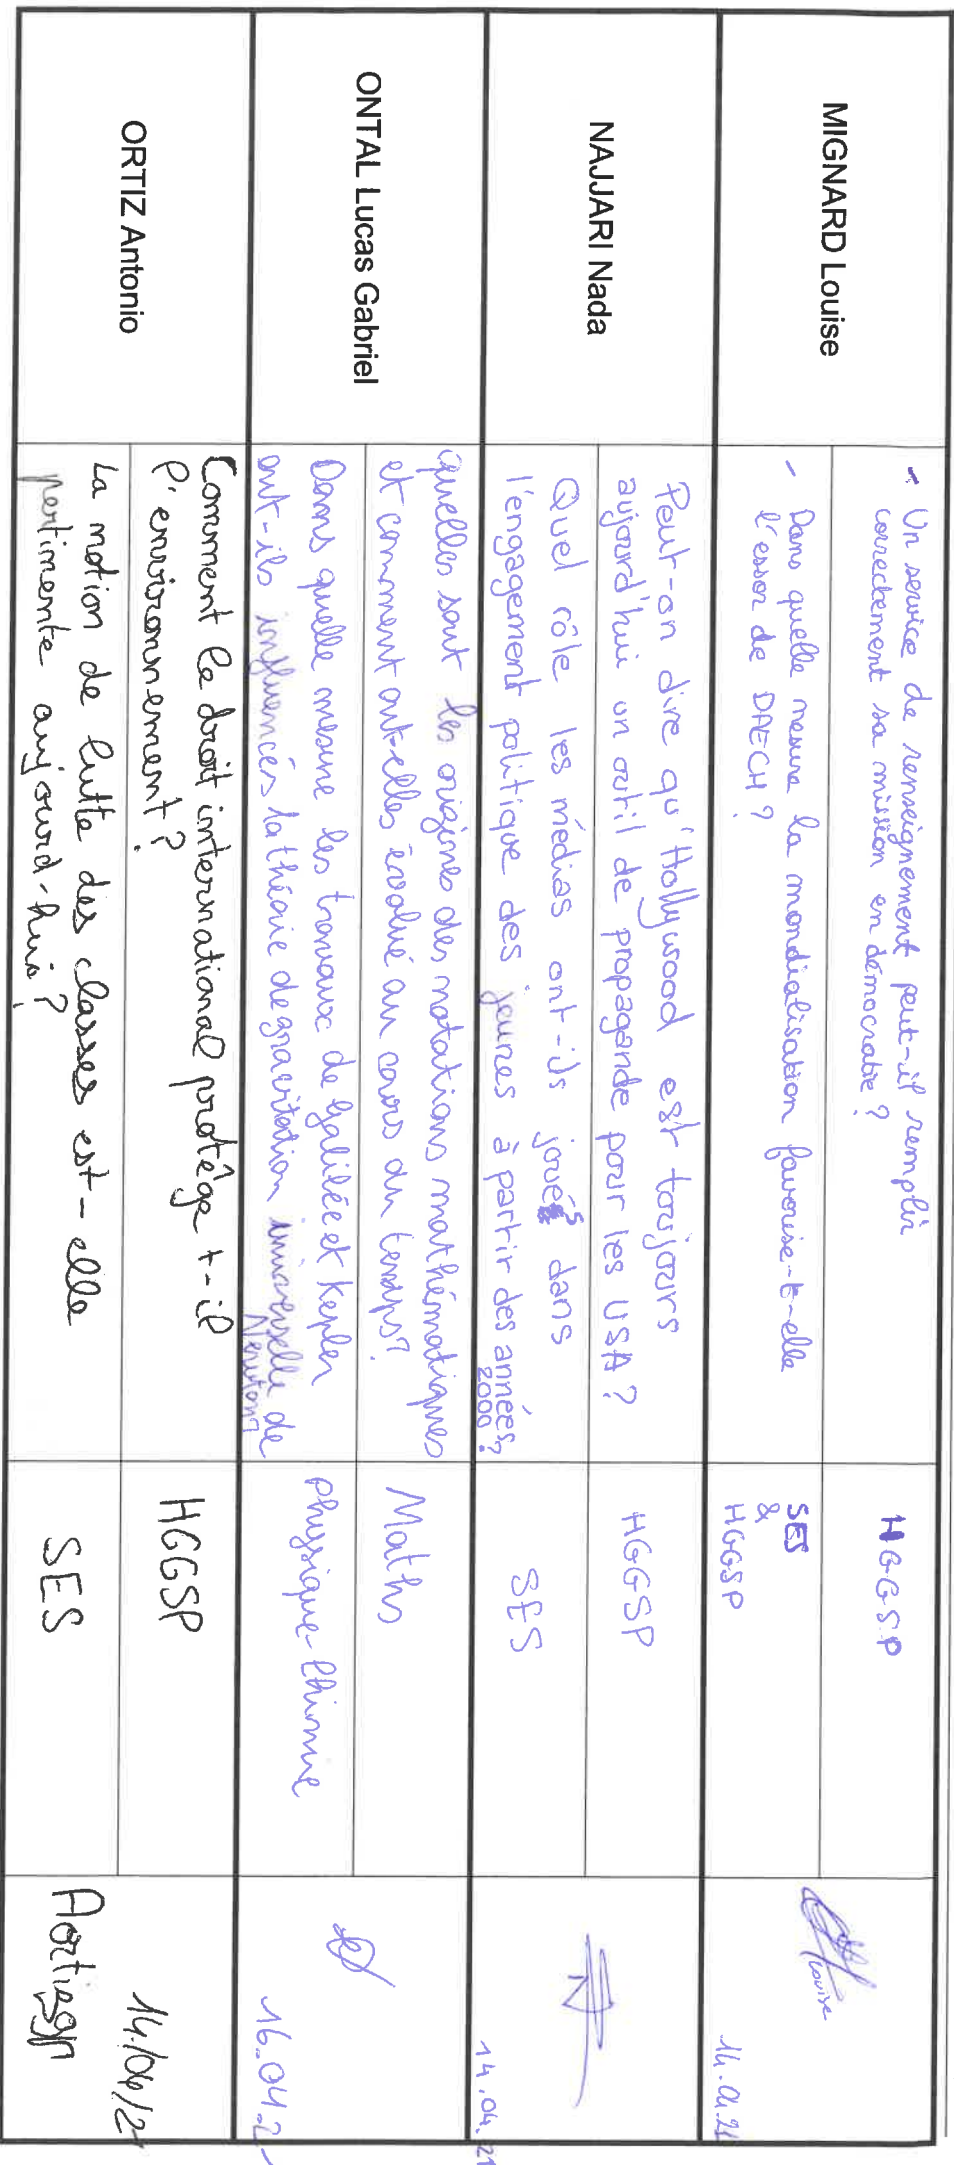 MIGNARD Louise
- Un service de renseignement peut-il remplir
correctement sa mission en démocratie ?
HGGSP
- Dans quelle mesure la mondialisation favorise-t-elle
l'essor de DAECH ?
SES
&
HGGSP
Louise
14.04.21
NAJJARI Nada
Peut-on dire qu'Hollywood est toujours
aujourd'hui un outil de propagande pour les USA ?
HGGSP
Quel rôle les médias ont-ils joués dans
l'engagement politique des jeunes à partir des années
2000 ?
SES
14.04.21
ONTAL Lucas Gabriel
Quelles sont les origines des notations mathématiques
et comment ont-elles évolué au cours du temps ?
Maths
Dans quelle mesure les travaux de Galilée et Kepler
ont-ils influencés la théorie de gravitation universelle de
Newton ?
Physique-Chimie
16.04.2
ORTIZ Antonio
Comment le droit international protège t-il
l'environnement ?
HGGSP
La notion de lutte des classes est-elle
pertinente aujourd-hui ?
SES
14/04/2